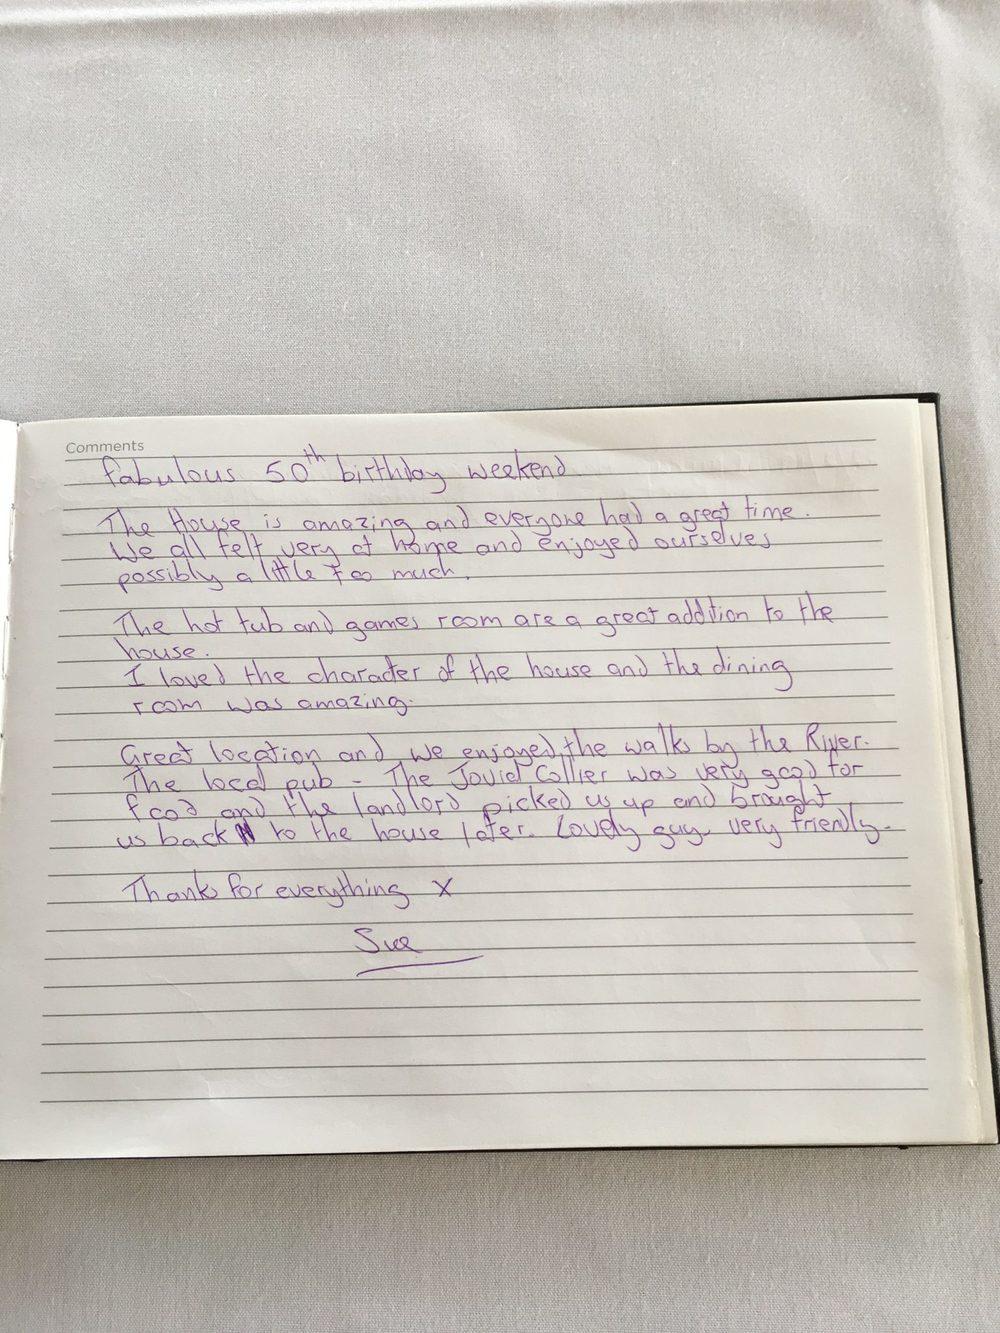 Comments
fabulous 50th birthday weekend
The House is amazing and everyone had a great time.
We all felt very at home and enjoyed ourselves
possibly a little too much.
The hot tub and games room are a great addition to the
house.
I loved the character of the house and the dining
room was amazing.
Great location and we enjoyed the walks by the River.
The local pub - The Joviel Collier was very good for
food and the landlord picked us up and brought
us back to the house later. Lovely guy. very friendly.
Thanks for everything X
Sue